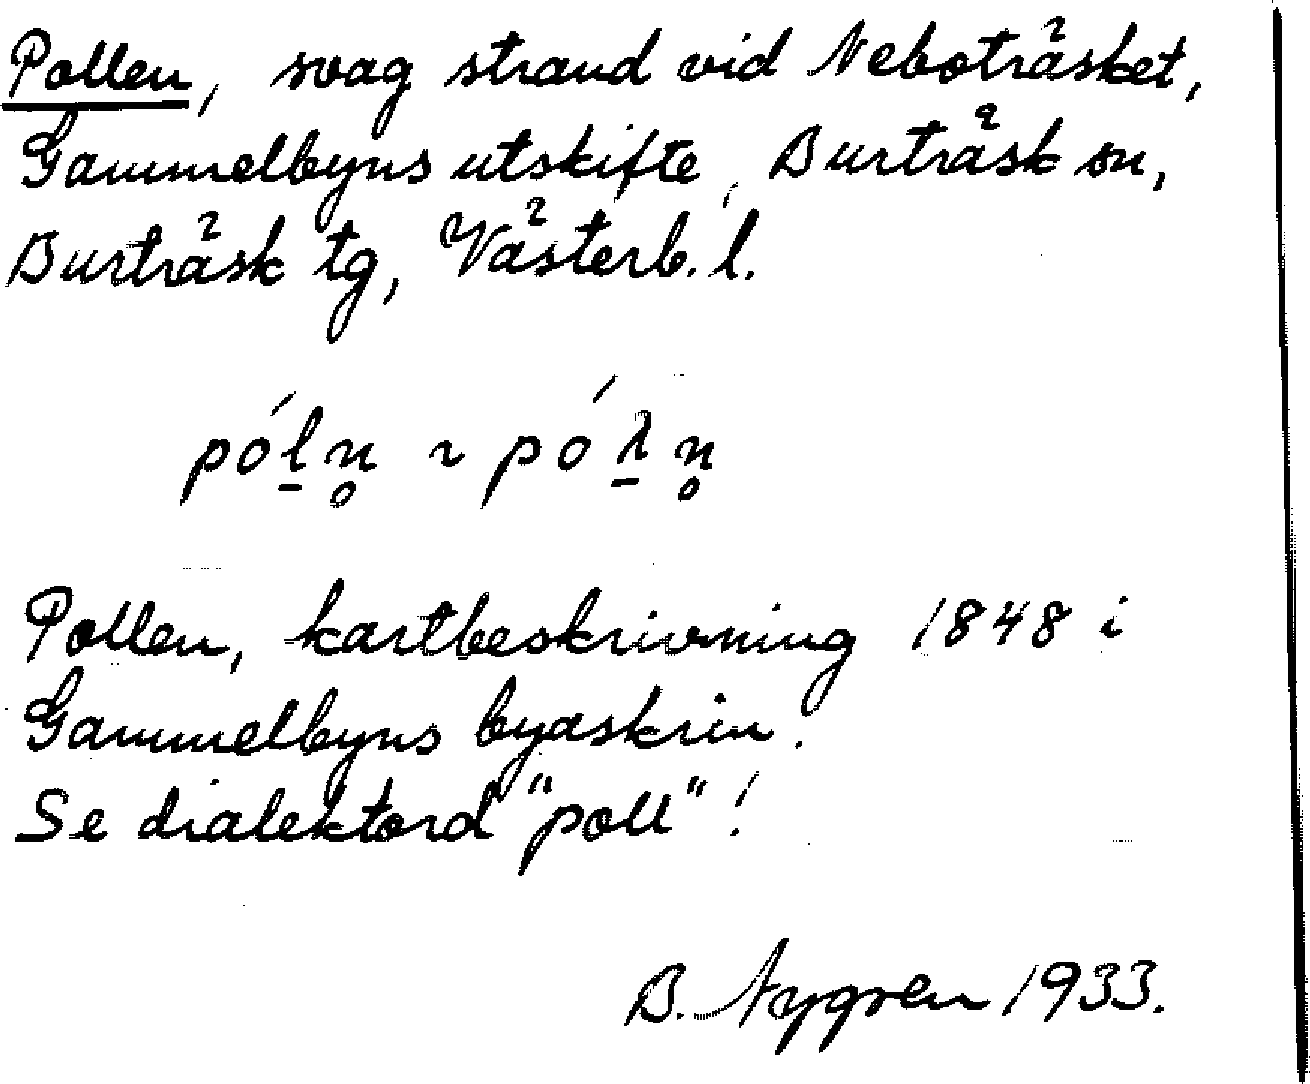 Pollen, svag strand vid Neboträsket,
Gammelbyns utskifte, Burträsk sn,
Burträsk tg, Västerb. l.
póḻn̥ ~ póλ̱n̥
Pollen, kartbeskrivning 1848 i
Gammelbyns byaskrin.
Se dialektord "poll"!
B. Nygren 1933.